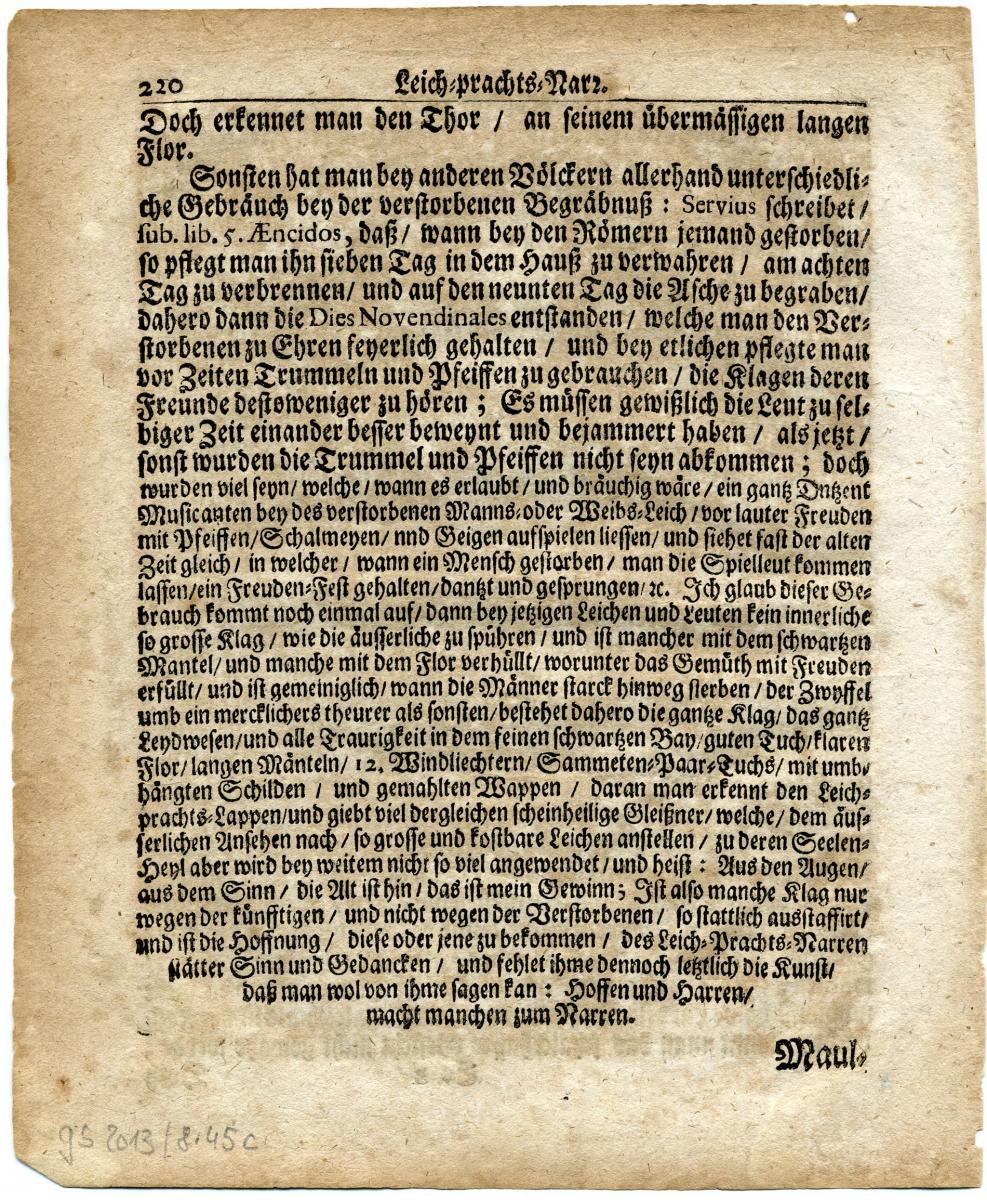 220 Leich-prachts-Narr.
Doch erkennet man den Thor / an seinem übermässigen langen
Flor.
Sonsten hat man bey anderen Völckern allerhand unterschiedli-
che Gebräuch bey der verstorbenen Begräbnuß : Servius schreibet /
sub. lib. 5. Æncidos, daß / wann bey den Römern jemand gestorben /
so pflegt man ihn sieben Tag in dem Hauß zu verwahren / am achten
Tag zu verbrennen / und auf den neunten Tag die Asche zu begraben /
dahero dann die Dies Novendinales entstanden / welche man den Ver-
storbenen zu Ehren feyerlich gehalten / und bey etlichen pflegte man
vor Zeiten Trummeln und Pfeiffen zu gebrauchen / die Klagen deren
Freunde destoweniger zu hören ; Es müssen gewißlich die Leut zu sel-
biger Zeit einander besser beweynt und bejammert haben / als jetzt /
sonst wurden die Trummel und Pfeiffen nicht seyn abkommen ; doch
wurden viel seyn / welche / wann es erlaubt / und bräuchig wäre / ein gantz Dutzent
Musicanten bey des verstorbenen Manns-oder Weibs-Leich / vor lauter Freuden
mit Pfeiffen / Schalmeyen / nnd Geigen aufspielen liessen / und siehet fast der alten
Zeit gleich / in welcher / wann ein Mensch gestorben / man die Spielleut kommen
lassen / ein Freuden-Fest gehalten / dantzt und gesprungen / ꝛc. Ich glaub dieser Ge-
brauch kommt noch einmal auf / dann bey jetzigen Leichen und Leuten kein innerliche
so grosse Klag / wie die äusserliche zu spühren / und ist mancher mit dem schwartzen
Mantel / und manche mit dem Flor verhüllt / worunter das Gemüth mit Freuden
erfüllt / und ist gemeiniglich / wann die Männer starck hinweg sterben / der Zwyffel
umb ein mercklichers theurer als sonsten / bestehet dahero die gantze Klag / das gantz
Leydwesen / und alle Traurigkeit in dem feinen schwartzen Bay / guten Tuch / klaren
Flor / langen Mänteln / 12. Windliechtern / Sammeten-Paar-Tuchs / mit umb-
hängten Schilden / und gemahlten Wappen / daran man erkennt den Leich-
prachts-Lappen / und giebt viel dergleichen scheinheilige Gleißner / welche / dem äus-
serlichen Ansehen nach / so grosse und kostbare Leichen anstellen / zu deren Seelen-
Heyl aber wird bey weitem nicht so viel angewendet / und heist : Aus den Augen /
aus dem Sinn / die Alt ist hin / das ist mein Gewinn ; Ist also manche Klag nur
wegen der künfftigen / und nicht wegen der Verstorbenen / so stattlich ausstaffirt /
und ist die Hoffnung / diese oder jene zu bekommen / des Leich-Prachts-Narren
stätter Sinn und Gedancken / und fehlet ihme dennoch letztlich die Kunst /
daß man wol von ihme sagen kan : Hoffen und Harren /
macht manchen zum Narren.
Maul-
gS 2013/8.45c